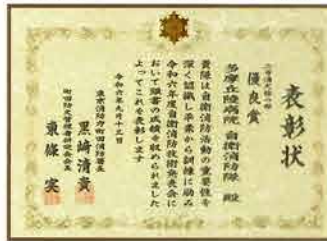 表彰状
二号消火栓の部
優良賞
多摩丘陵病院 自衛消防隊 殿
貴隊は自衛消防活動の重要性を
深く認識し平素から訓練に励み
令和六年度自衛消防技術発表会に
おいて頭書の成績を収められました
よってこれを表彰します
令和六年九月十三日
東京消防庁町田消防署長
黒崎清貴
町田防火管理研究会会長
東條実